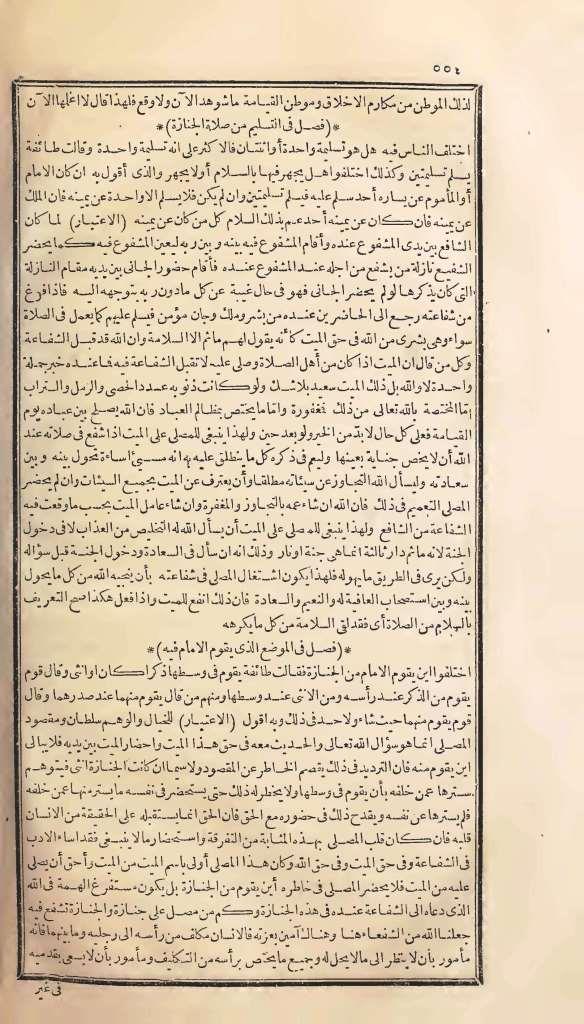 ٥٥٤
لذلك الموطن من مكارم الاخلاق وموطن القيامة ماشوهد الآن ولا وقع فلهذا قال لا اعلمها الآن
*(فصل فى التسليم من صلاة الجنازة)*
اختلف الناس فيه هل هو تسليمة واحدة أو اثنتان فالاكثر على انه تسليمة واحدة وقالت طائفة
يسلم تسليمتين وكذلك اختلفوا هل يجهر فيها بالسلام أولا يجهر والذى أقول به ان كان الامام
أو المأموم عن يساره أحد سلم عليه فيسلم تسليمتين وان لم يكن فلا يسلم الا واحدة عن يمينه فان الملك
عن يمينه فان كان عن يمينه أحد عم بذلك السلام كل من كان عن يمينه (الاعتبار) لما كان
الشافع بين يدى المشفوع عنده وأقام المشفوع فيه بينه وبين ربه ليعين المشفوع فيه كما يحضر
الشفيع نازلة من يشفع من أجله عند المشفوع عنده فأقام حضور الجانى بين يديه مقام النازلة
التى كان يذكرها لو لم يحضر الجانى فهو فى حال غيبة عن كل ما دون ربه بتوجهه اليه فاذا فرغ
من شفاعته رجع الى الحاضرين عنده من بشر وملك وجان مؤمن فيسلم عليهم كما يفعل فى الصلاة
سواء وهى بشرى من الله فى حق الميت كأنه يقول لهم ماثم الا السلامة وان الله قد قبل الشفاعة
وكل من قال ان الميت اذا كان من أهل الصلاة وصلى عليه لا تقبل الشفاعة فيه فما عنده خبر جملة
واحدة لا والله بل ذلك الميت سعيد بلاشك ولو كانت ذنوبه عدد الحصى والرمل والتراب
اما المختصة بالله تعالى من ذلك فمغفورة واما ما يختص بمظالم العباد فان الله يصلح بين عباده يوم
القيامة فعلى كل حال لا بد من الخير ولو بعد حين ولهذا ينبغى للمصلى على الميت اذا شفع فى صلاته عند
الله أن لا يخص جناية بعينها وليعم فى ذكره كل ما ينطلق عليه به انه مسيئ اساءة تحول بينه وبين
سعادته وليسأل الله التجاوز عن سيئاته مطلقا وأن يعترف عن الميت بجميع السيئات وان لم يحضر
المصلى التعميم فى ذلك فان الله ان شاء عمه بالتجاوز والمغفرة وان شاء عامل الميت بحسب ما وقعت فيه
الشفاعة من الشافع ولهذا ينبغى للمصلى على الميت أن يسأل الله له التخليص من العذاب لا فى دخول
الجنة لانه ماثم دار ثالثة انما هى جنة أو نار وذلك انه ان سأل فى السعادة ودخول الجنة قبل سؤاله
ولكن يرى فى الطريق ما يهوله فلهذا يكون اشتغال المصلى فى شفاعته بأن ينجيه الله من كل ما يحول
بينه وبين استصحاب العافية له والنعيم والسعادة فان ذلك انفع للميت واذا فعل هكذا صح التعريف
بالسلام من الصلاة أى فقد لقى السلامة من كل ما يكرهه
*(فصل فى الموضع الذى يقوم الامام فيه)*
اختلفوا اين يقوم الامام من الجنازة فقالت طائفة يقوم فى وسطها ذكرا كان أو انثى وقال قوم
يقوم من الذكر عند رأسه ومن الانثى عند وسطها ومنهم من قال يقوم منهما عند صدرهما وقال
قوم يقوم منهما حيث شاء ولا حد فى ذلك وبه اقول (الاعتبار) للخيال والوهم سلطان ومقصود
المصلى انما هو سؤال الله تعالى والحديث معه فى حق هذا الميت واحضار الميت بين يديه فلا يبالى
اين يقوم منه فان الترديد فى ذلك يقصم الخاطر عن المقصود ولا سيما ان كانت الجنازة انثى فيتوهم
سترها عمن خلفه بأن يقوم فى وسطها ولا يخطر له ذلك حتى يستحضر فى نفسه ما يسترمنها عمن خلفه
فلم يسترها عن نفسه ويقدح ذلك فى حضوره مع الحق فان الحق انما يستقبله على الحقيقة من الانسان
قلبه فان كان قلب المصلى بهذه المثابة من التفرقة واستحضار ما لا ينبغى فقد اساء الادب
فى الشفاعة وفى حق الميت وفى حق الله وكان هذا المصلى أولى باسم الميت من الميت وأحق أن يصلى
عليه من الميت فلا يحضر المصلى فى خاطره أين يقوم من الجنازة بل يكون مستفرغ الهمة فى الله
الذى دعاه الى الشفاعة عنده فى هذه الجنازة وكم من مصل على جنازة والجنازة تشفع فيه
جعلنا الله من الشفعاء هنا وهناك آمين بعزته فالانسان مكلف من رأسه الى رجليه وما بينهما فانه
مأمور بأن لا ينظر الى ما لا يحل له وجميع ما يختص برأسه من التكليف ومأمور بأن لا يسعى بقدميه
فى غير